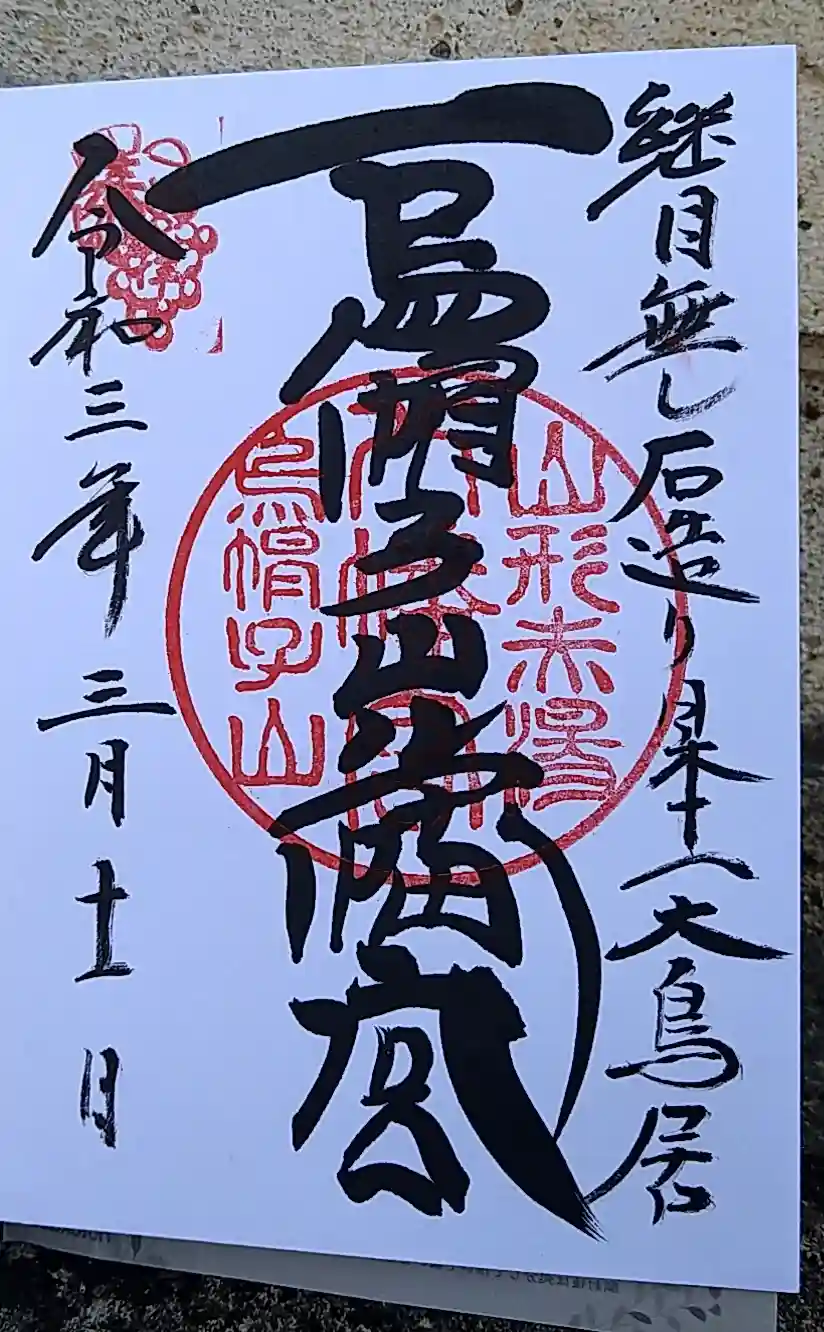 継目無し石造り日本一大鳥居
烏帽子山八幡宮
令和三年三月十一日
山形赤湯
八幡宮
烏帽子山